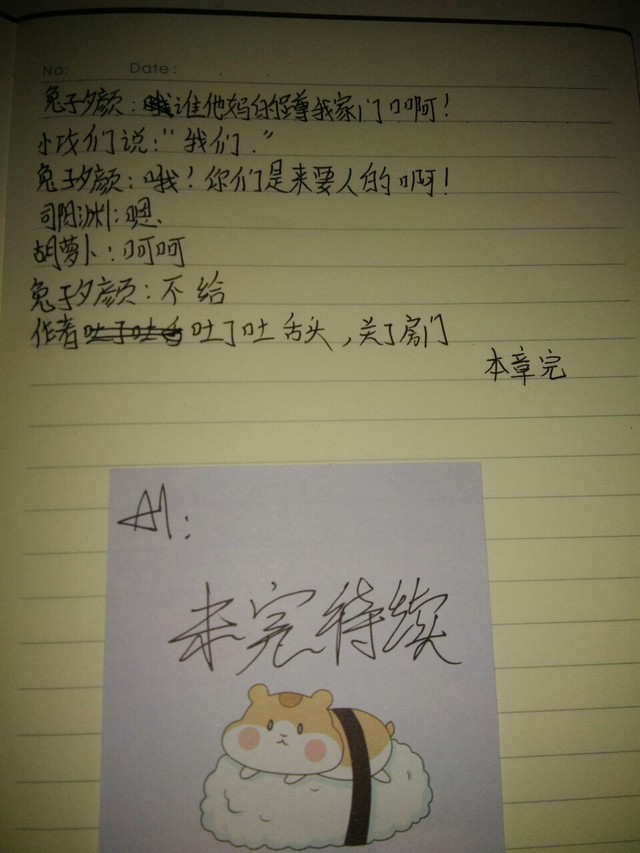 No: Date:
兔子夕颜：谁他妈的踹我家门口啊！
小攻们说："我们."
兔子夕颜：哦！你们是来要人的啊！
司阳渊：嗯、
胡萝卜：呵呵
兔子夕颜：不给
作者吐了吐舌头，关了房门
本章完
A1：
未完待续